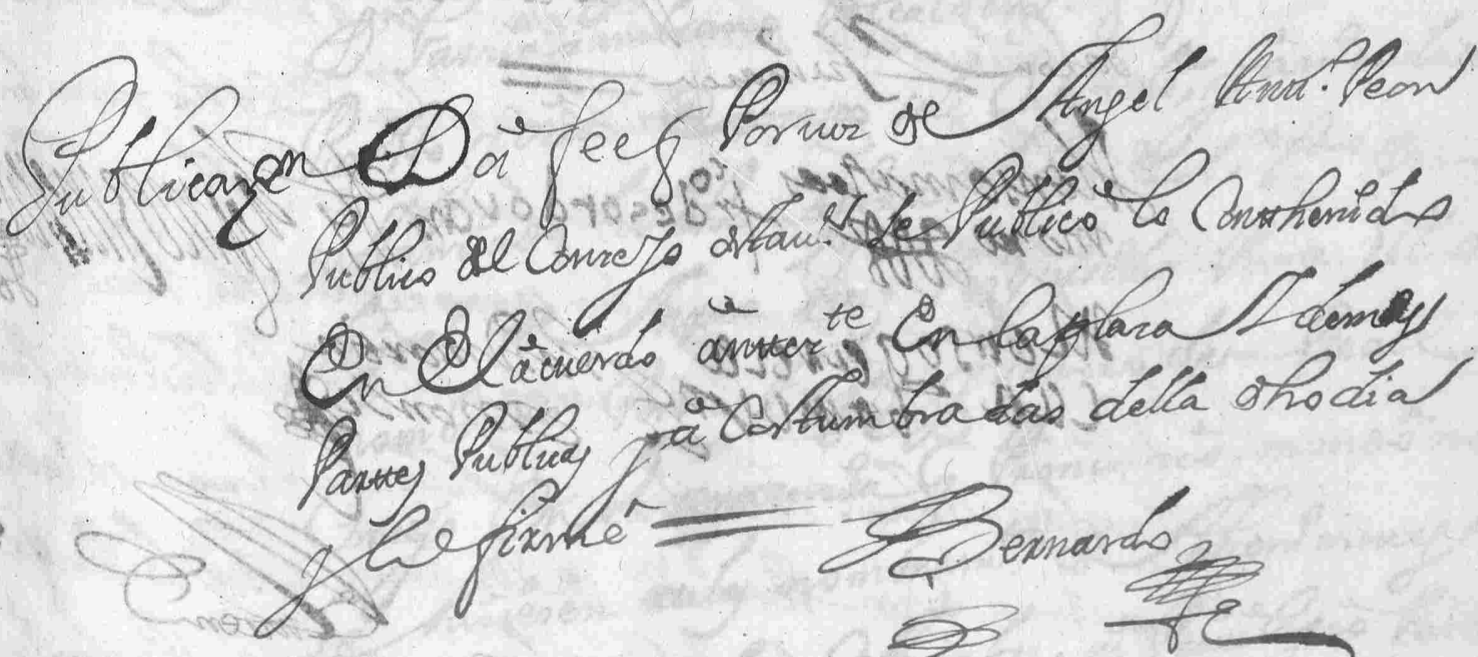 Publicazon Dà feeq Por voz de Angel Antt.º Peon
Publico del Conzejo desta v.ª se Publicò lo Contthenido
En El àcuerdo ànttez.te En la plaza I demas
Parttes Publicas y à Costumbradas della dho dia
y lo firmè
Bernardo